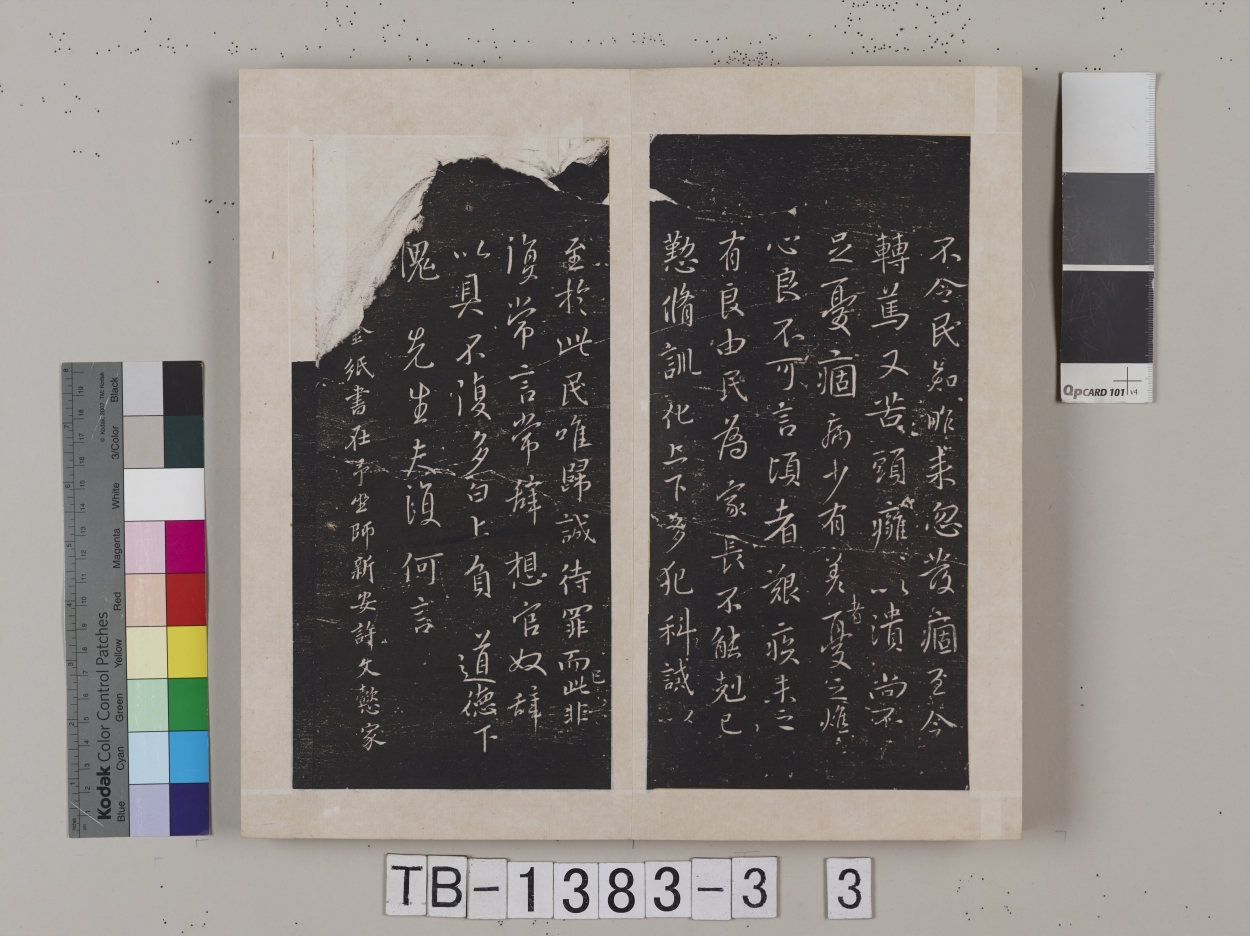 不令民知昨來忽發痼至今
轉篤又苦頭癰以潰尚不
足憂痼病少有差者憂之燋
心良不可言頃者艱疾未之
有良由民為家長不能剋己
懃脩訓化上下多犯科誡以
至於此民唯歸誠待罪而已此非
復常言常辭想官奴辭
以具不復多白上負道德下
愧先生夫復何言
金紙書在予坐師新安許文懿家
Kodak Color Control Patches
© Kodak, 2007, TM: Kodak
Blue
Cyan
Green
Yellow
Red
Magenta
White
3/Color
Black
QpCARD 101 v4
TB-1383-3 3